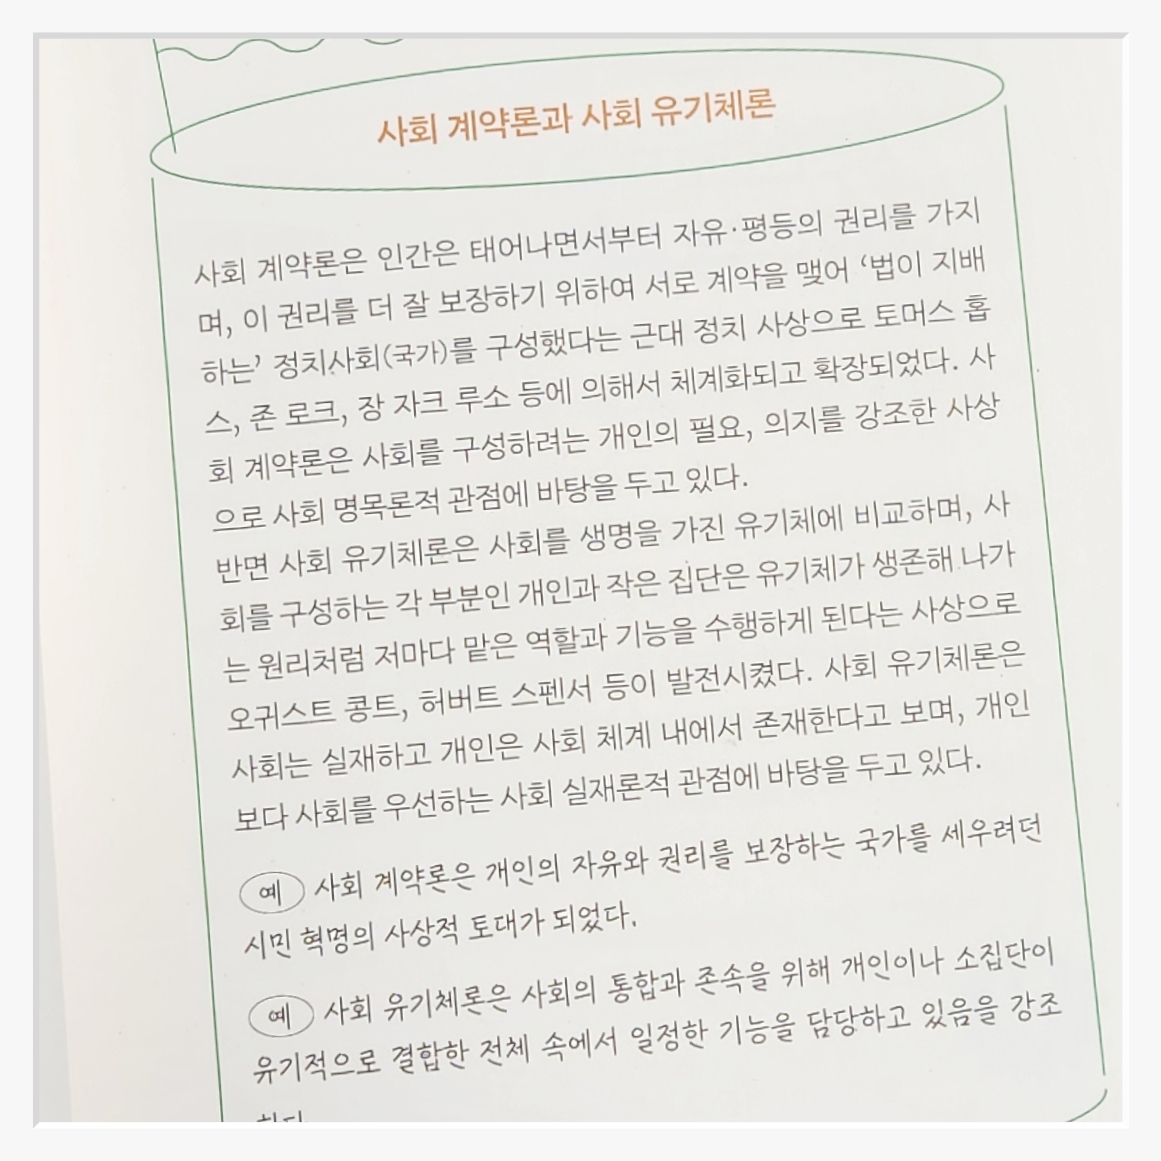 사회 계약론과 사회 유기체론
사회 계약론은 인간은 태어나면서부터 자유·평등의 권리를 가지
며, 이 권리를 더 잘 보장하기 위하여 서로 계약을 맺어 ‘법이 지배
하는’ 정치사회(국가)를 구성했다는 근대 정치 사상으로 토머스 홉
스, 존 로크, 장 자크 루소 등에 의해서 체계화되고 확장되었다. 사
회 계약론은 사회를 구성하려는 개인의 필요, 의지를 강조한 사상
으로 사회 명목론적 관점에 바탕을 두고 있다.
반면 사회 유기체론은 사회를 생명을 가진 유기체에 비교하며, 사
회를 구성하는 각 부분인 개인과 작은 집단은 유기체가 생존해 나가
는 원리처럼 저마다 맡은 역할과 기능을 수행하게 된다는 사상으로
오귀스트 콩트, 허버트 스펜서 등이 발전시켰다. 사회 유기체론은
사회는 실재하고 개인은 사회 체계 내에서 존재한다고 보며, 개인
보다 사회를 우선하는 사회 실재론적 관점에 바탕을 두고 있다.
예 사회 계약론은 개인의 자유와 권리를 보장하는 국가를 세우려던
시민 혁명의 사상적 토대가 되었다.
예 사회 유기체론은 사회의 통합과 존속을 위해 개인이나 소집단이
유기적으로 결합한 전체 속에서 일정한 기능을 담당하고 있음을 강조